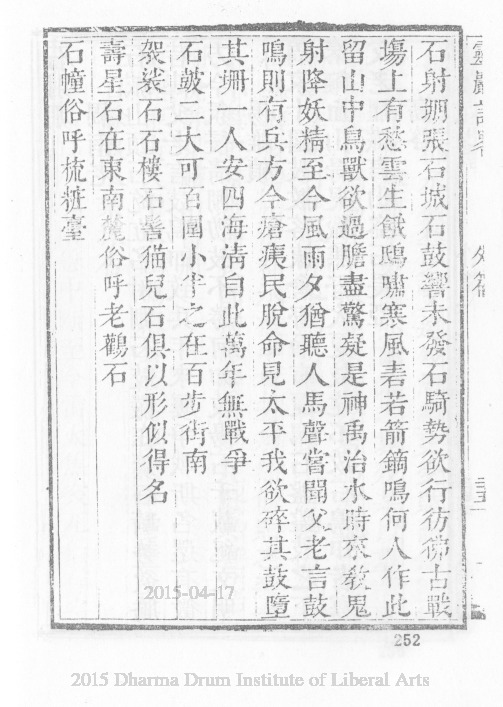 石射堋張石城石鼓響未發石騎勢欲行彷彿古戰
塲上有愁雲生餓鴟嘯寒風砉若箭鏑鳴何人作此
留山中鳥獸欲過膽盡驚疑是神禹治水時來敎鬼
射降妖精至今風雨夕猶聽人馬聲嘗聞父老言鼓
鳴則有兵方今瘡痍民脫命見太平我欲碎其鼓墮
其堋一人安四海淸自此萬年無戰爭
石鼓二大可百圍小半之在百步街南
袈裟石石樓石髻猫兒石俱以形似得名
壽星石在東南麓俗呼老鸛石
石幢俗呼梳粧臺
靈巖記略
外篇
2015-04-17
252
2015 Dharma Drum Institute of Liberal Arts